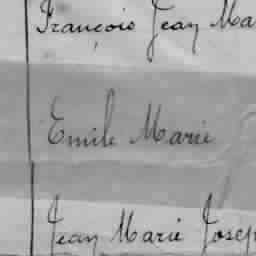 François Jean Ma
Emile Marie
Jean Marie Josep